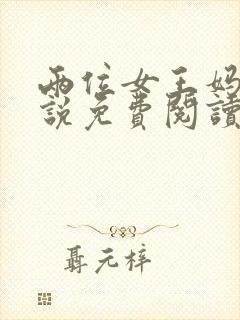 兩位女王媽
說免費閱讀
聶元梓